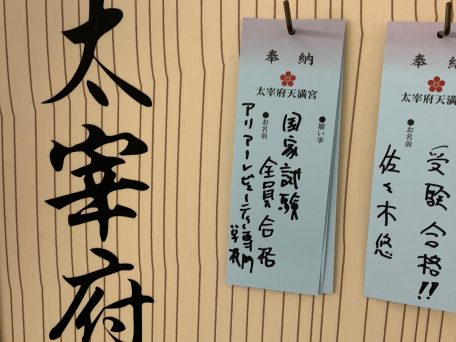 太宰府
奉納
太宰府天満宮
●願い事
国家試験
全員合格
●お名前
アリアーレビューティー専門
学校
奉納
太宰府天満宮
受験合格!!
●お名前
佐々木悠